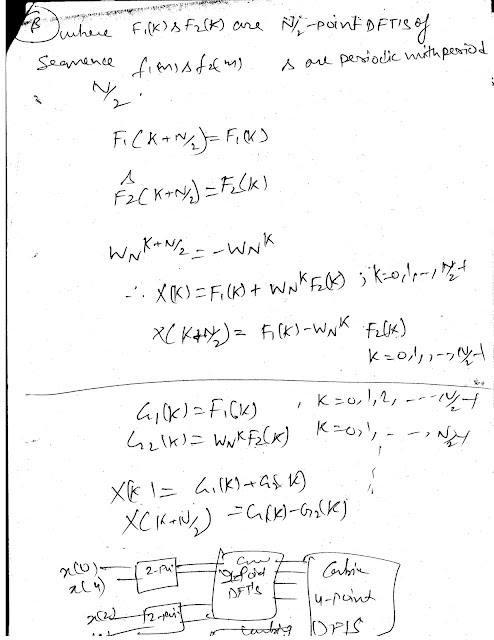 where F1(K) & F2(K) are N/2-point DFT'S of
Sequence f1(m) & f2(m) & are periodic with period
N/2.
F1(K+N/2) = F1(K)
&
F2(K+N/2) = F2(K)
WN^K+N/2 = -WN^K
∴ X(K) = F1(K) + WN^K F2(K) ; K=0,1,--,N/2-1
X(K+N/2) = F1(K) - WN^K F2(K)
K=0,1,--,N/2-1
G1(K) = F1(K) , K=0,1,2,----N/2-1
G2(K) = WN^K F2(K) K=0,1,- - -, N/2-1
X(K) = G1(K)+G2(K)
X(K+N/2) = G1(K)-G2(K)
x(0)
x(4)
2-
2-Point
DFT'S
Combine
4-point
DFTS
2-